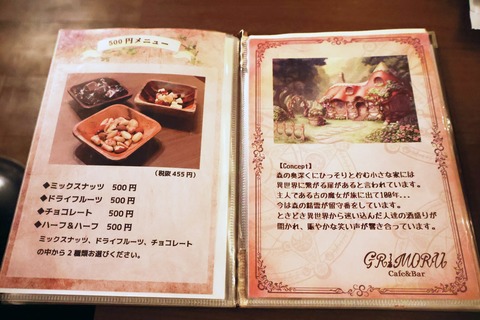 500円メニュー
(税抜 455円)
◆ミックスナッツ 500円
◆ドライフルーツ 500円
◆チョコレート 500円
◆ハーフ&ハーフ 500円
ミックスナッツ、ドライフルーツ、チョコレート
の中から2種類お選びください。
【Concept】
森の奥深くにひっそりと佇む小さな家には
異世界に繋がる扉があると言われています。
主人である古の魔女が旅に出て100年...
今は森の精霊が留守番をしています。
ときどき異世界から迷い込んだ人達の酒盛りが
開かれ、賑やかな笑い声が響き合っています。
GRiMORU
Cafe&Bar